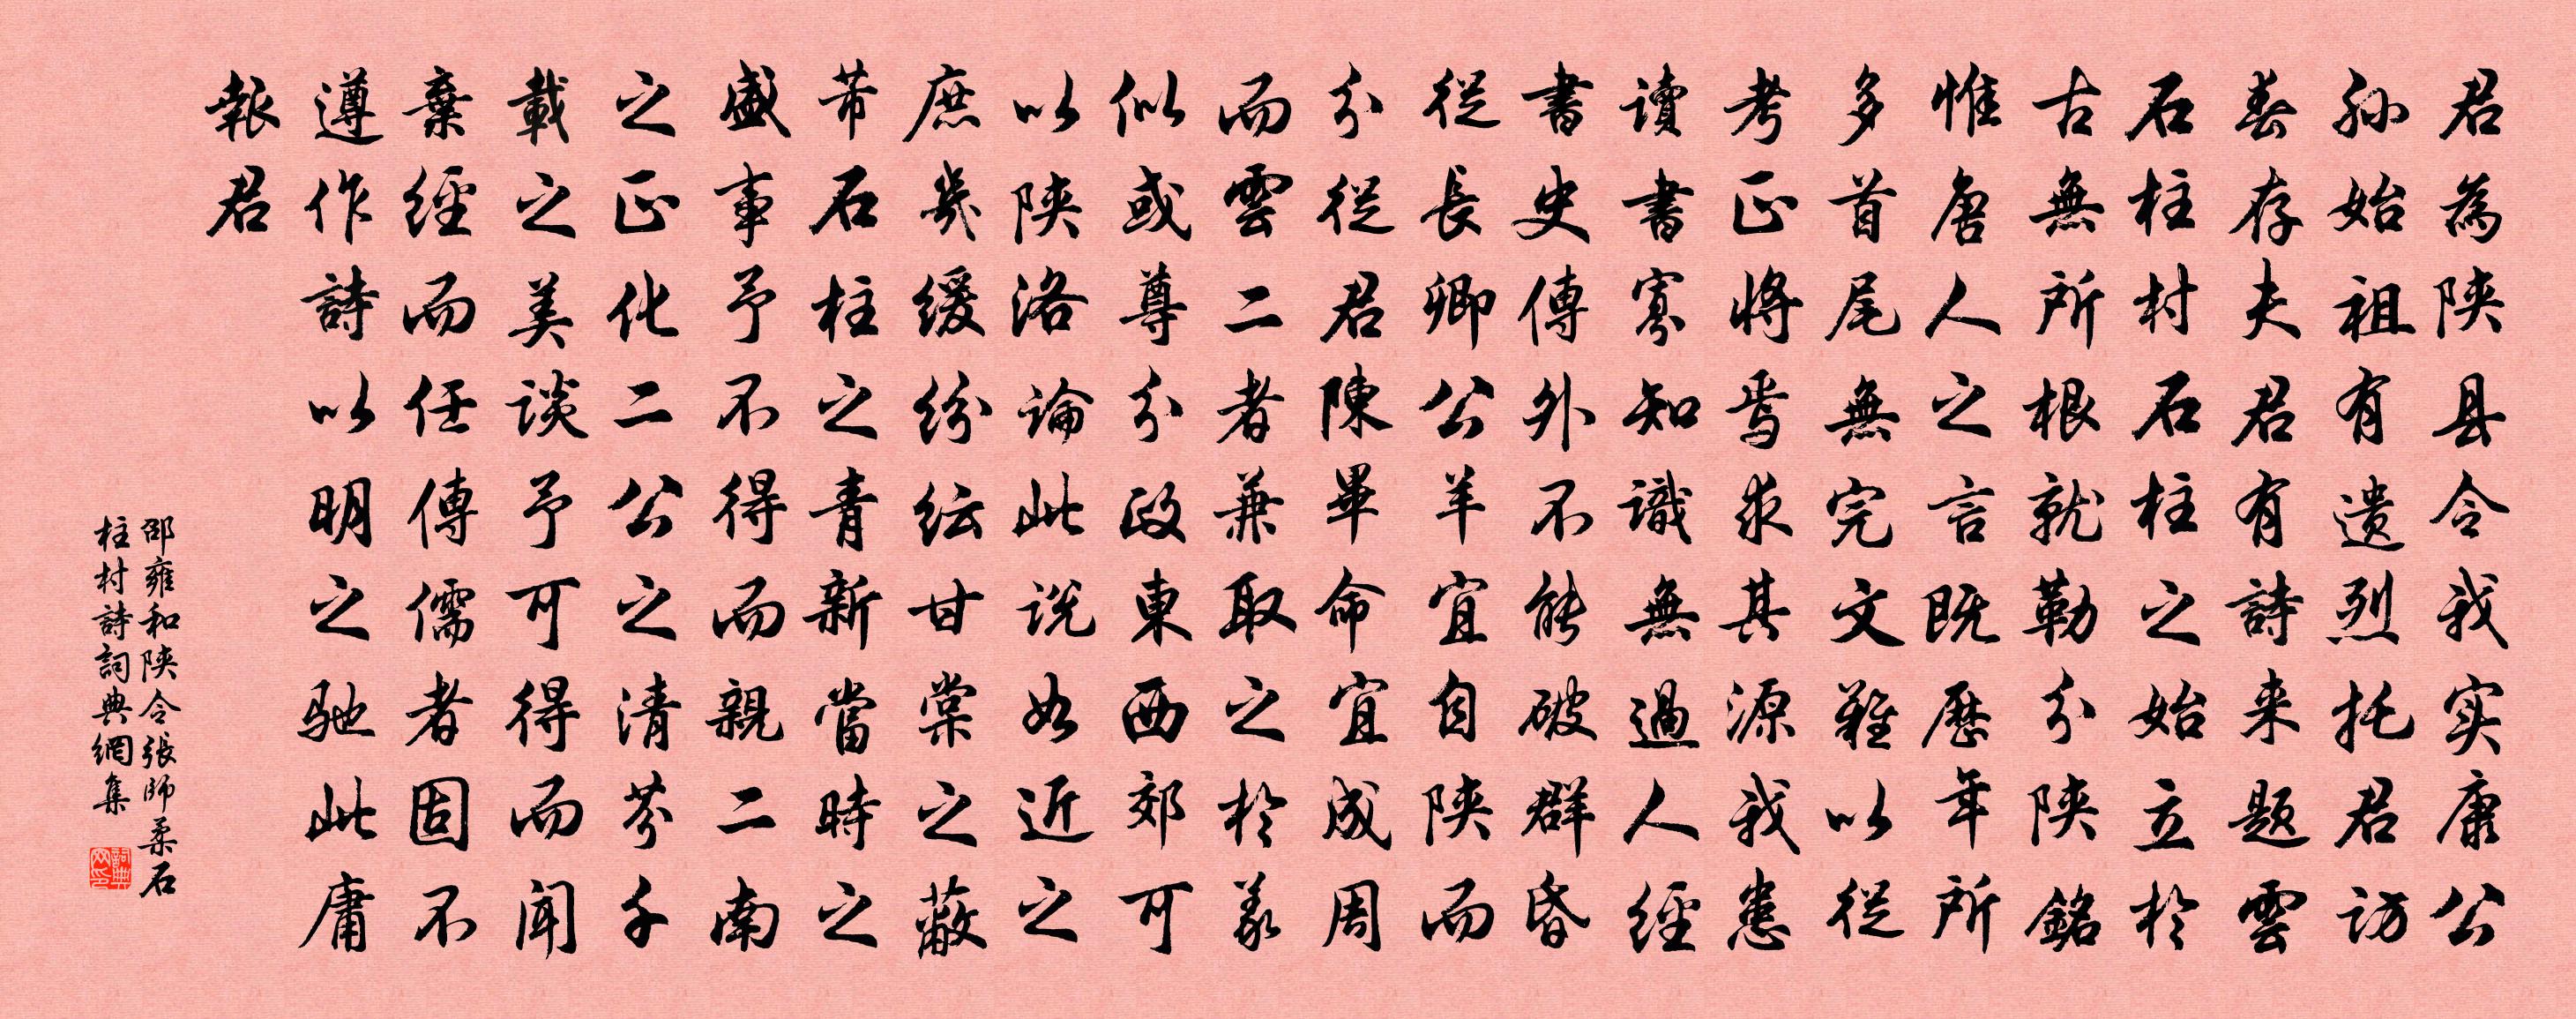 君為陝县令我实康公
孙始祖有遗烈托君访
春存夫君有詩来题雲
石柱村石柱之始立於
古無所根就勒分陝銘
惟唐人之言既歷年所
多首尾無完文難以從
考正将焉求其源我患
讀書寡知識無過人經
書史傳外不能破群昏
從長卿公羊宜自陝而
分從君陳畢命宜成周
而雲二者兼取之於義
似或尊分政東西郊可
以陝洛論此说如近之
庶幾缓纷纭甘棠之蔽
芾石柱之青新當時之
盛事予不得而親二南
之正化二公之清芬千
載之美谈予可得而闻
棄經而任傳儒者固不
遵作詩以明之驰此庸
報君
邵雍和陝令張師柔石
柱村詩詞典網集
詞典网印